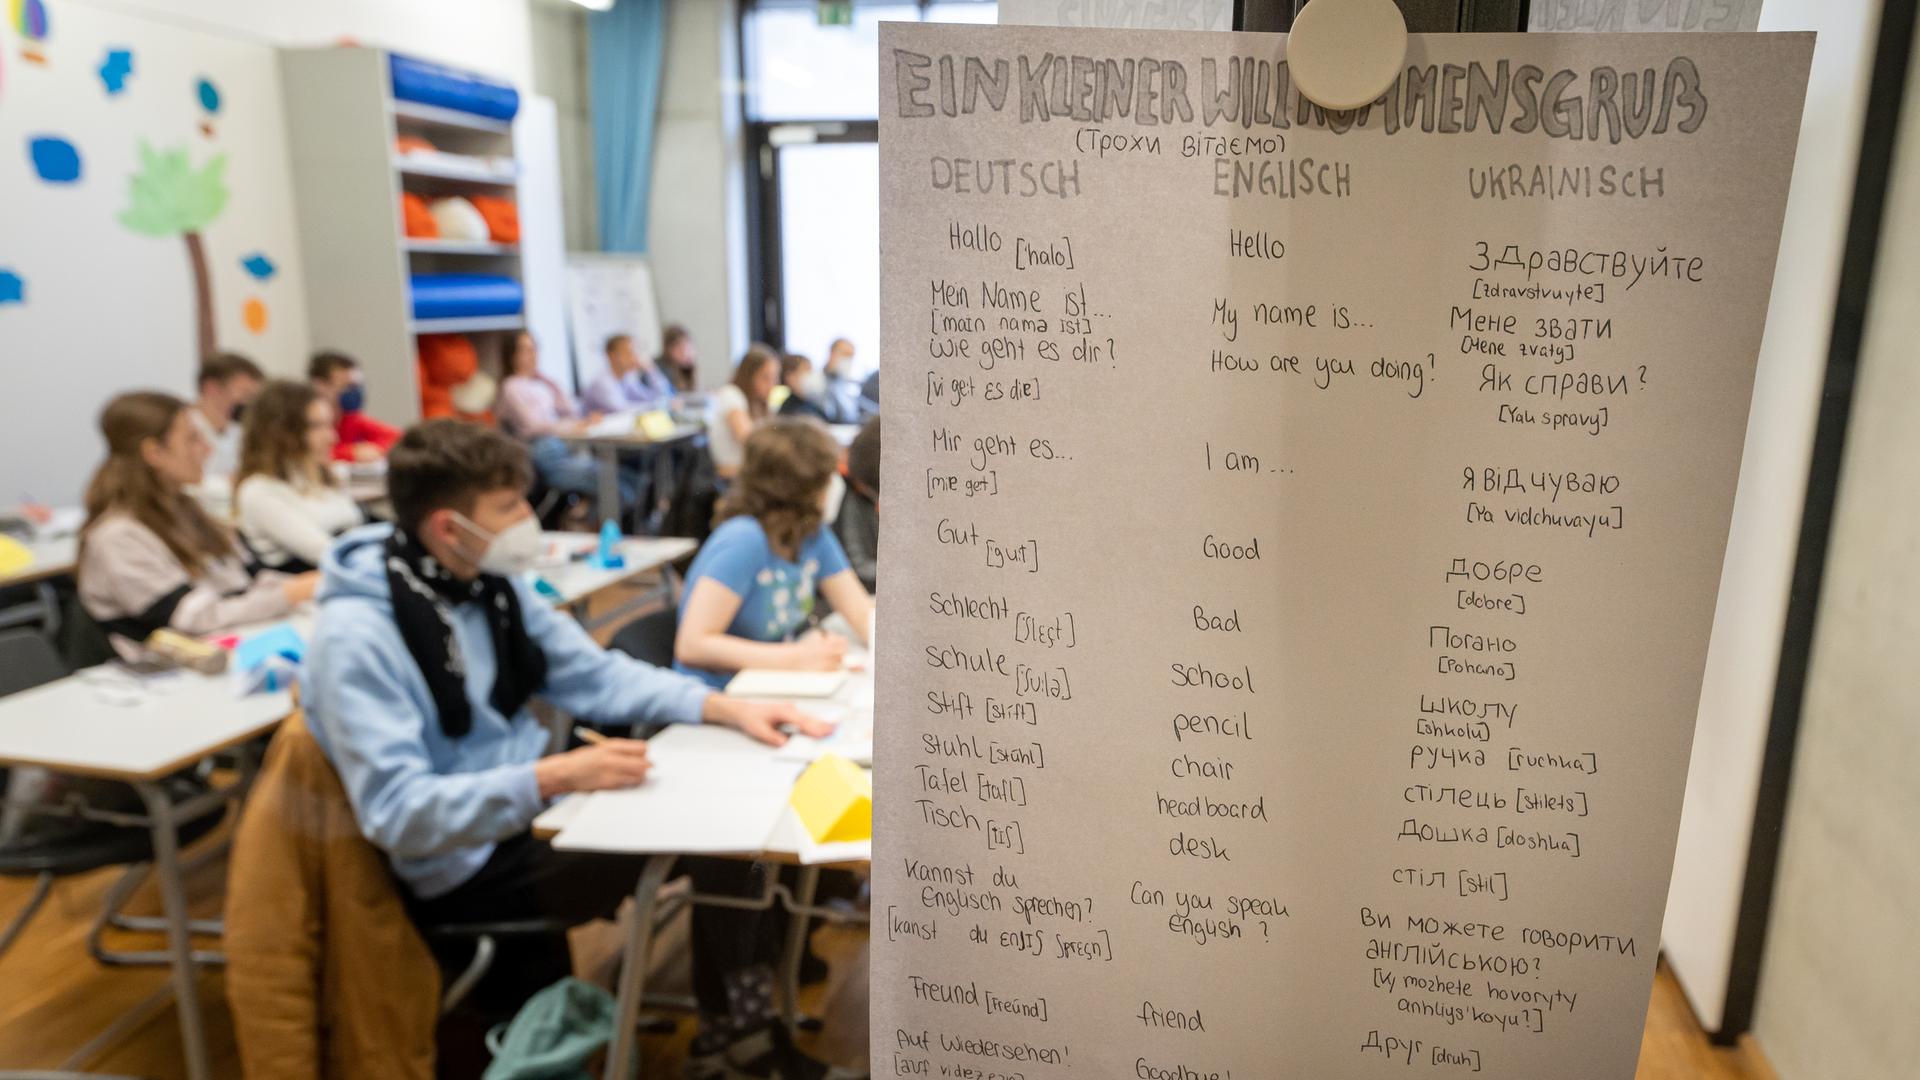 EIN KLEINER WILLKOMMENSGRUß
(Трохи вітаємо)
DEUTSCH ENGLISCH UKRAINISCH
Hallo ['halo] Hello Здравствуйте
[zdravstvuyte]
Mein Name ist... My name is... Мене звати
['main namə ist] [Mene zvaty]
Wie geht es dir? How are you doing? Як справи?
[vi ge:t ɛs die] [Yak spravy]
Mir geht es... I am ... Я відчуваю
[mie get] [Ya vidchuvayu]
Gut [gu:t] Good Добре
[dobre]
Schlecht [ʃlɛçt] Bad Погано
[Pohano]
Schule [ʃu:lə] School школу
[shkolu]
Stift [stift] pencil ручка [ruchka]
Stuhl [stuhl] chair стілець [stilets]
Tafel [tafl] headboard Дошка [doshka]
Tisch [tɪʃ] desk стіл [stil]
Kannst du Englisch sprechen? Can you speak english? Ви можете говорити англійською?
[kanst du ] [Vy mozhete hovoryty anhliys'koyu?]
Freund [Freund] friend Друг [druh]
Auf Wiedersehen! Goodbye!